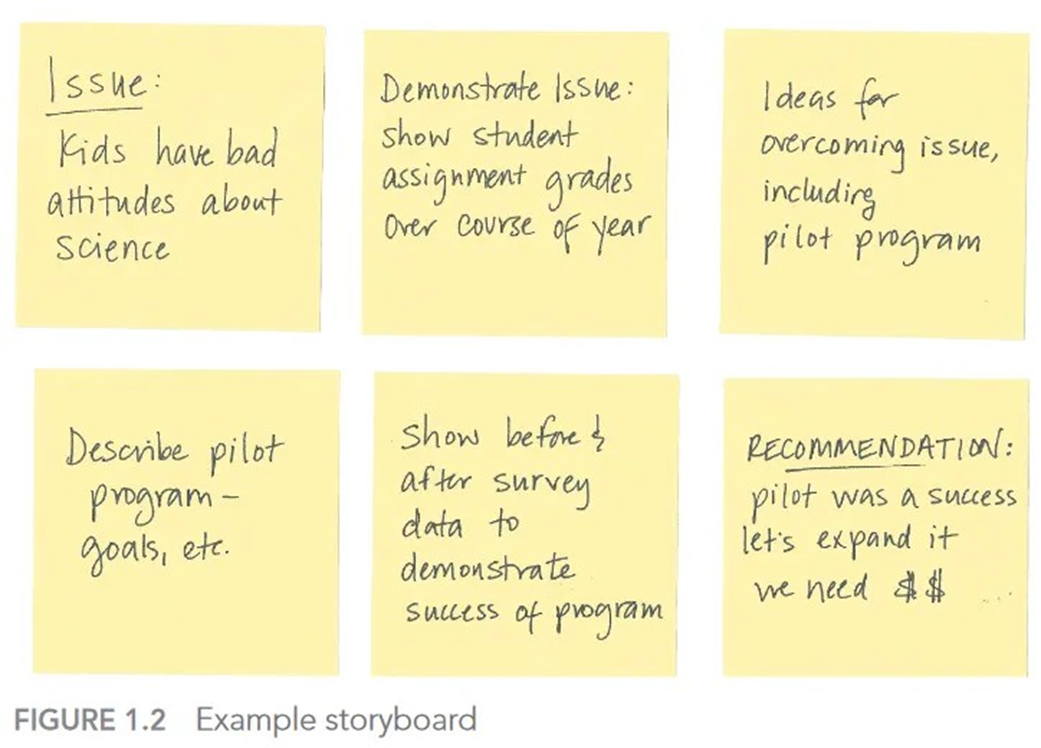 Issue:
Kids have bad
attitudes about
science
Demonstrate Issue:
show student
assignment grades
over course of year
Ideas for
overcoming issue,
including
pilot program
Describe pilot
program –
goals, etc.
Show before &
after survey
data to
demonstrate
success of program
RECOMMENDATION:
pilot was a success
let's expand it
we need $$
FIGURE 1.2 Example storyboard